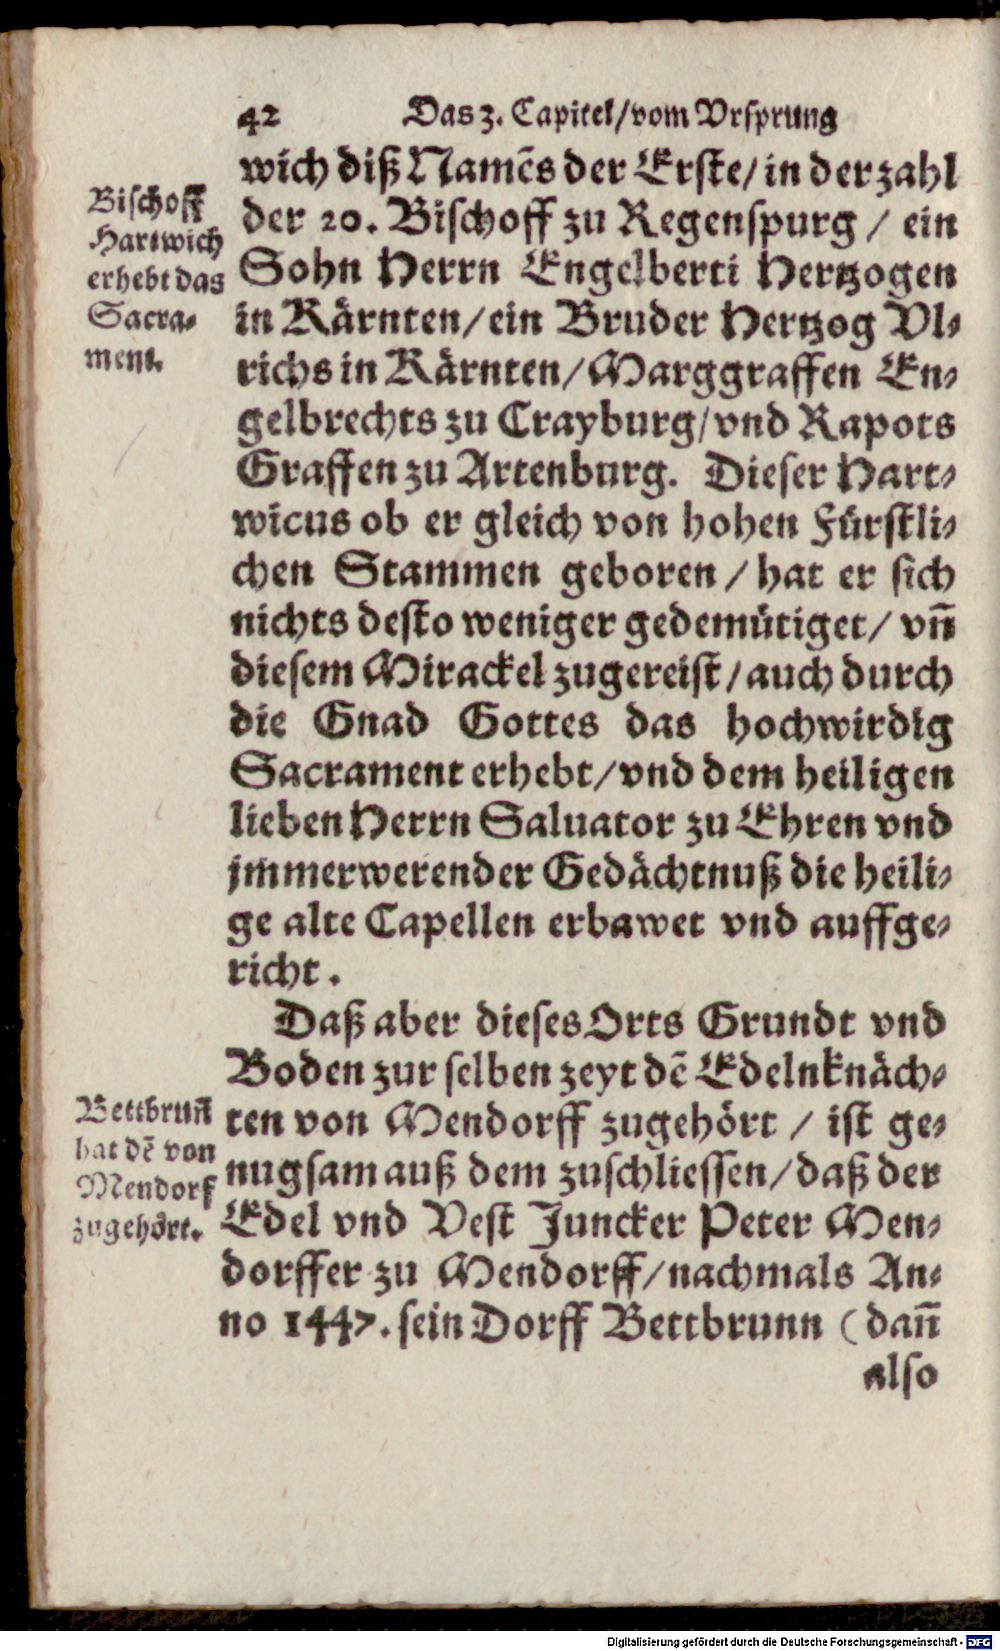 42 Das 3. Capitel/vom Vrsprung
wich diß Namēs der Erste/in der zahl
der 20. Bischoff zu Regenspurg / ein
Sohn Herrn Engelberti Hertzogen
in Kärnten/ein Bruder Hertzog Vl-
richs in Kärnten/Marggraffen En-
gelbrechts zu Crayburg/vnd Rapots
Graffen zu Artenburg. Dieser Hart-
wicus ob er gleich von hohen Fürstli-
chen Stammen geboren/hat er sich
nichts desto weniger gedemütiget/vn̄
diesem Mirackel zugereist/auch durch
die Gnad Gottes das hochwirdig
Sacrament erhebt/vnd dem heiligen
lieben Herrn Saluator zu Ehren vnd
jmmerwerender Gedächtnuß die heili-
ge alte Capellen erbawet vnd auffge-
richt.
Daß aber dieses Orts Grundt vnd
Boden zur selben zeyt dē Edelnknäch-
ten von Mendorff zugehört / ist ge-
nugsam auß dem zuschliessen/daß der
Edel vnd Vest Juncker Peter Men-
dorffer zu Mendorff/nachmals An-
no 1447. sein Dorff Bettbrunn (dan̄
also
Bischoff
Hartwich
erhebt das
Sacra-
ment.
Bettbrun̄
hat dē von
Mendorf
zugehört.
Digitalisierung gefördert durch die Deutsche Forschungsgemeinschaft - DFG